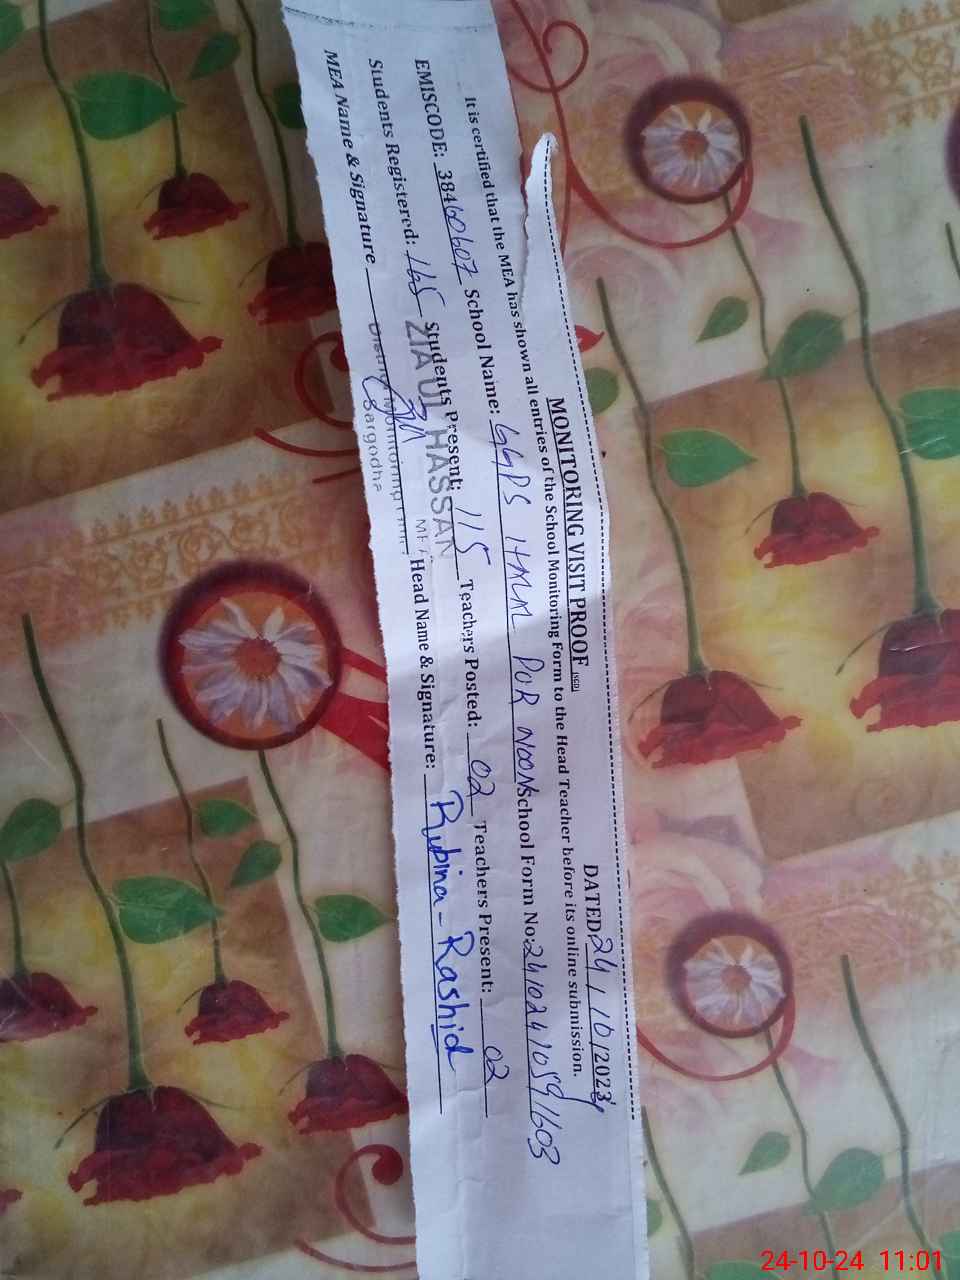 MONITORING VISIT PROOF (SED)
DATED: 24 / 10 / 2024
It is certified that the MEA has shown all entries of the School Monitoring Form to the Head Teacher before its online submission.
EMISCODE: 38460607 School Name: GGPS HAMM PUR NOON School Form No: 24102410591603
Students Registered: 165 Students Present: 115 Teachers Posted: 02 Teachers Present: 02
MEA Name & Signature Head Name & Signature: Rubina - Rashid
ZIA UL HASSAN
MEA
Sargodha
24-10-24 11:01